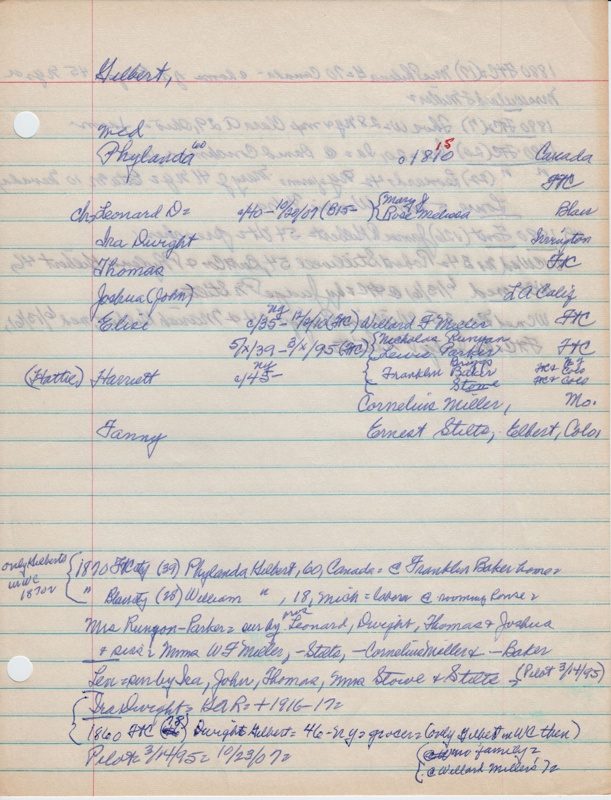 Gilbert,
Wed
Phylanda 60 c1810 15 Canada
FtC
ch= Leonard D= c/40 - 10/20/07 (B15- } {Mary J Blair
Rose Medusa
Ira Dwight Irvington
Thomas FtC
Joshua (John) LA Calif
Elise c/35 - NY 12/9/10 (FtC) Willard F Miller FtC
5/x/39 - 3/x/95 (FtC) { Nicholas Runyan
Lewis Parker FtC
(Hattie) Harriett c/45 - NY { Briggs
Franklin Baker
Stowe
Cornelius Miller, Mo.
Fanny Ernest Stilts, Elbert, Colo.
only Gilberts
in WC
1870=
{ 1870 FtCity (39) Phylanda Gilbert, 60, Canada = @ Franklin Baker home=
" Blair City (28) William " , 18, Mich = laborer @ rooming house=
Mrs Runyon-Parker = sur by bros Leonard, Dwight, Thomas & Joshua
& sisss = Mmms W F Miller, - Stilts, - Cornelius Miller & - Baker
Len = sur by Ira, John, Thomas, Mmes Stowe & Stilts = (Pilot 3/14/95)
{ Ira Dwight = GAR = + 1916-17=
1860 FtC Dwight Gilbert = 46 - NY = grocer = (only Gilbert in WC then)
(@ no family=
Pilot = 3/14/95 = 10/23/07=
(@ Willard Miller's)=